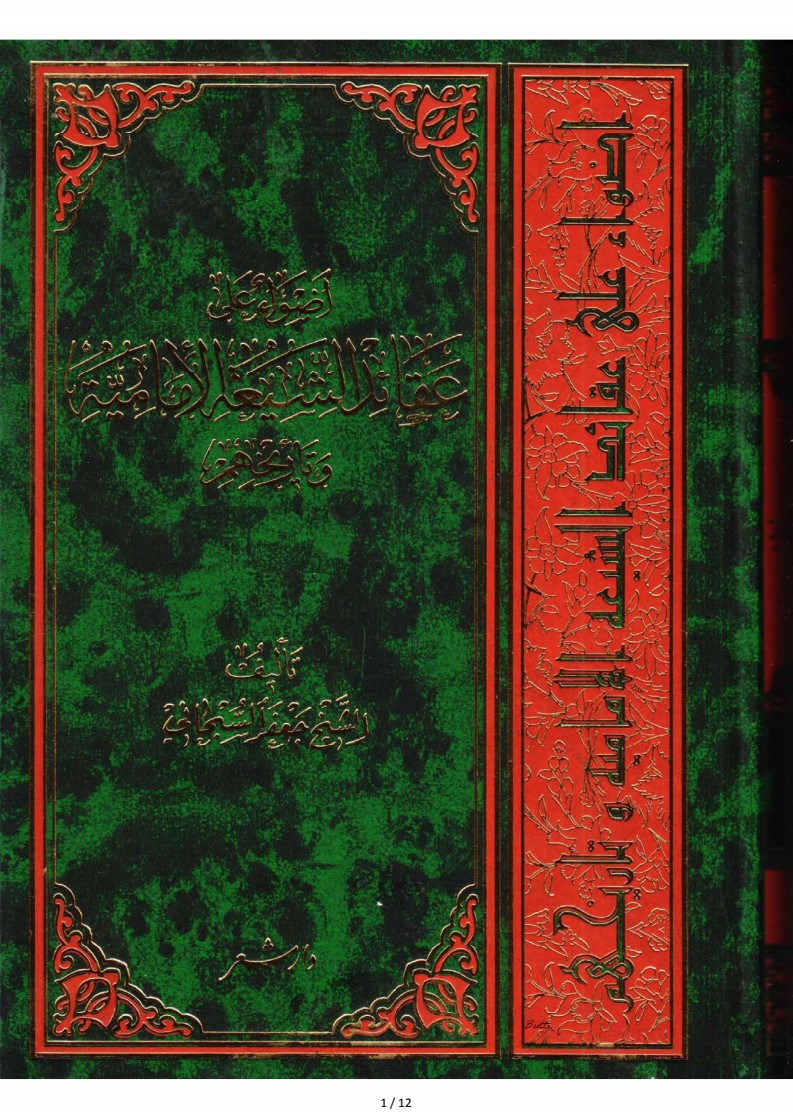 أضواء على
عقائد الشيعة الإمامية
وتاريخهم
تأليف
الشيخ جعفر السبحاني
دار مشعر
أضواء على عقائد الشيعة الإمامية و تاريخهم
Butti
1 / 12